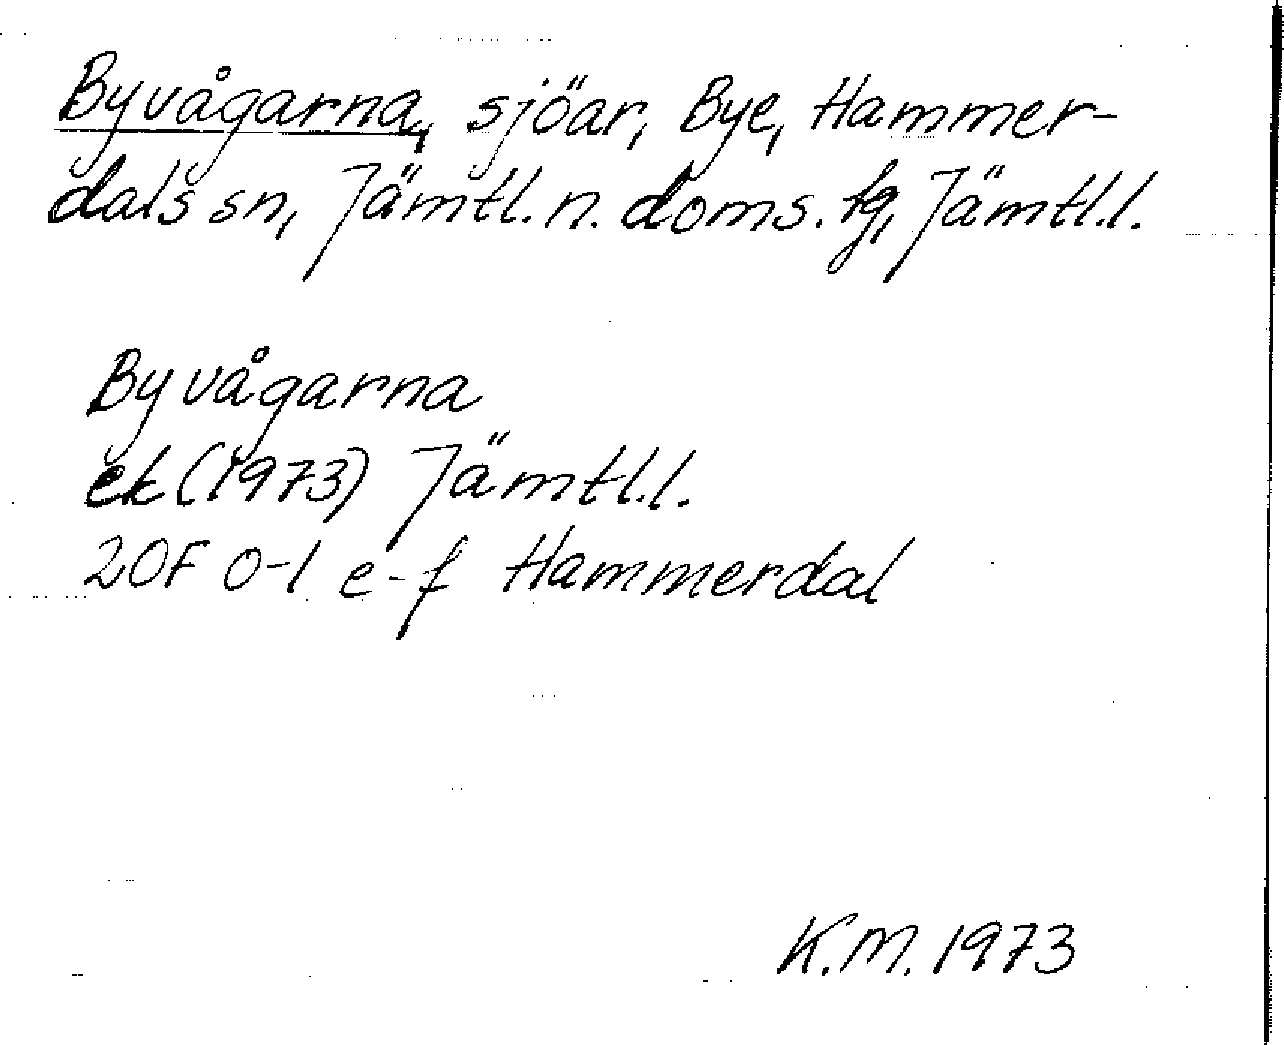 Byvågarna, sjöar, Bye, Hammer-
dals sn, Jämtl. n. doms. fg, Jämtl.l.
Byvågarna
ek (1973) Jämtl.l.
20F 0-1 e-f Hammerdal
K.M. 1973